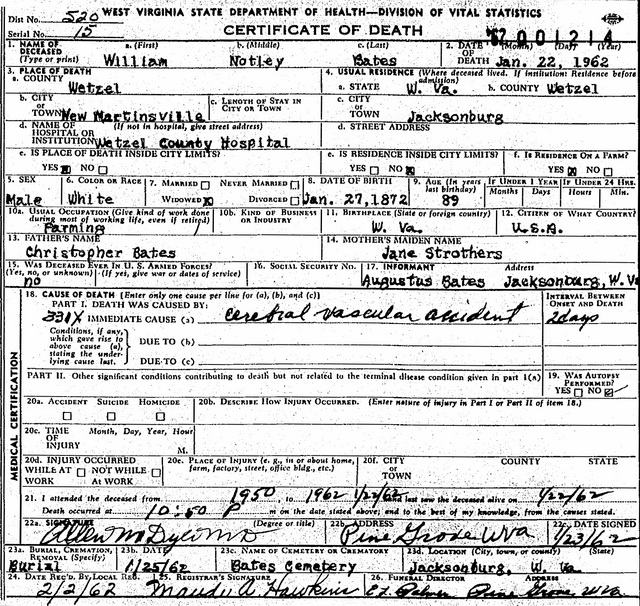 WEST VIRGINIA STATE DEPARTMENT OF HEALTH—DIVISION OF VITAL STATISTICS
Dist No. 520
Serial No. 15 CERTIFICATE OF DEATH 62 001214
1. NAME OF DECEASED (Type or print) a. (First) b. (Middle) c. (Last) 2. DATE OF DEATH (Month) (Day) (Year)
William Notley Bates Jan. 22, 1962
3. PLACE OF DEATH 4. USUAL RESIDENCE (Where deceased lived. If institution: Residence before admission)
a. COUNTY Wetzel a. STATE W. Va. b. COUNTY Wetzel
b. CITY OR TOWN New Martinsville c. LENGTH OF STAY IN CITY OR TOWN c. CITY OR TOWN Jacksonburg
d. NAME OF HOSPITAL OR INSTITUTION (If not in hospital, give street address) Wetzel County Hospital d. STREET ADDRESS
e. IS PLACE OF DEATH INSIDE CITY LIMITS? e. IS RESIDENCE INSIDE CITY LIMITS? f. IS RESIDENCE ON A FARM?
YES NO YES NO YES NO
5. SEX 6. COLOR OR RACE 7. MARRIED NEVER MARRIED 8. DATE OF BIRTH 9. AGE (In years last birthday) IF UNDER 1 YEAR IF UNDER 24 HRS.
Months Days Hours Min.
Male White WIDOWED DIVORCED Jan. 27, 1872 89
10a. USUAL OCCUPATION (Give kind of work done during most of working life, even if retired) 10b. KIND OF BUSINESS OR INDUSTRY 11. BIRTHPLACE (State or foreign country) 12. CITIZEN OF WHAT COUNTRY?
Farming W. Va. U.S.A.
13. FATHER'S NAME 14. MOTHER'S MAIDEN NAME
Christopher Bates Jane Strothers
15. WAS DECEASED EVER IN U.S. ARMED FORCES? (Yes, no, or unknown) (If yes, give war or dates of service) 16. SOCIAL SECURITY NO. 17. INFORMANT Address
no Augustus Bates Jacksonburg, W. Va
18. CAUSE OF DEATH (Enter only one cause per line for (a), (b), and (c)) INTERVAL BETWEEN ONSET AND DEATH
PART I. DEATH WAS CAUSED BY:
331X IMMEDIATE CAUSE (a) cerebral vascular accident 2 days
Conditions, if any, which gave rise to above cause (a), stating the underlying cause last. DUE TO (b)
DUE TO (c)
PART II. Other significant conditions contributing to death but not related to the terminal disease condition given in part 1(a) 19. WAS AUTOPSY PERFORMED?
YES NO
MEDICAL CERTIFICATION
20a. ACCIDENT SUICIDE HOMICIDE 20b. DESCRIBE HOW INJURY OCCURRED. (Enter nature of injury in Part I or Part II of item 18.)
20c. TIME OF INJURY Month, Day, Year, Hour
M.
20d. INJURY OCCURRED WHILE AT WORK NOT WHILE AT WORK 20e. PLACE OF INJURY (e. g., in or about home, farm, factory, street, office bldg., etc.) 20f. CITY OR TOWN COUNTY STATE
21. I attended the deceased from 1950, to 1962 1/22/62 and last saw the deceased alive on 1/22/62
Death occurred at 10:50 P m on the date stated above; and to the best of my knowledge, from the causes stated.
22a. SIGNATURE (Degree or title) 22b. ADDRESS 22c. DATE SIGNED
Pine Grove WVa 1/23/62
23a. BURIAL, CREMATION, REMOVAL (Specify) 23b. DATE 23c. NAME OF CEMETERY OR CREMATORY 23d. LOCATION (City, town, or county) (State)
Burial 1/25/62 Bates Cemetery Jacksonburg, W. Va
24. DATE REC'D. BY LOCAL REG. 25. REGISTRAR'S SIGNATURE 26. FUNERAL DIRECTOR ADDRESS
2/2/62 Maude A Hawkins Pine Grove WVa